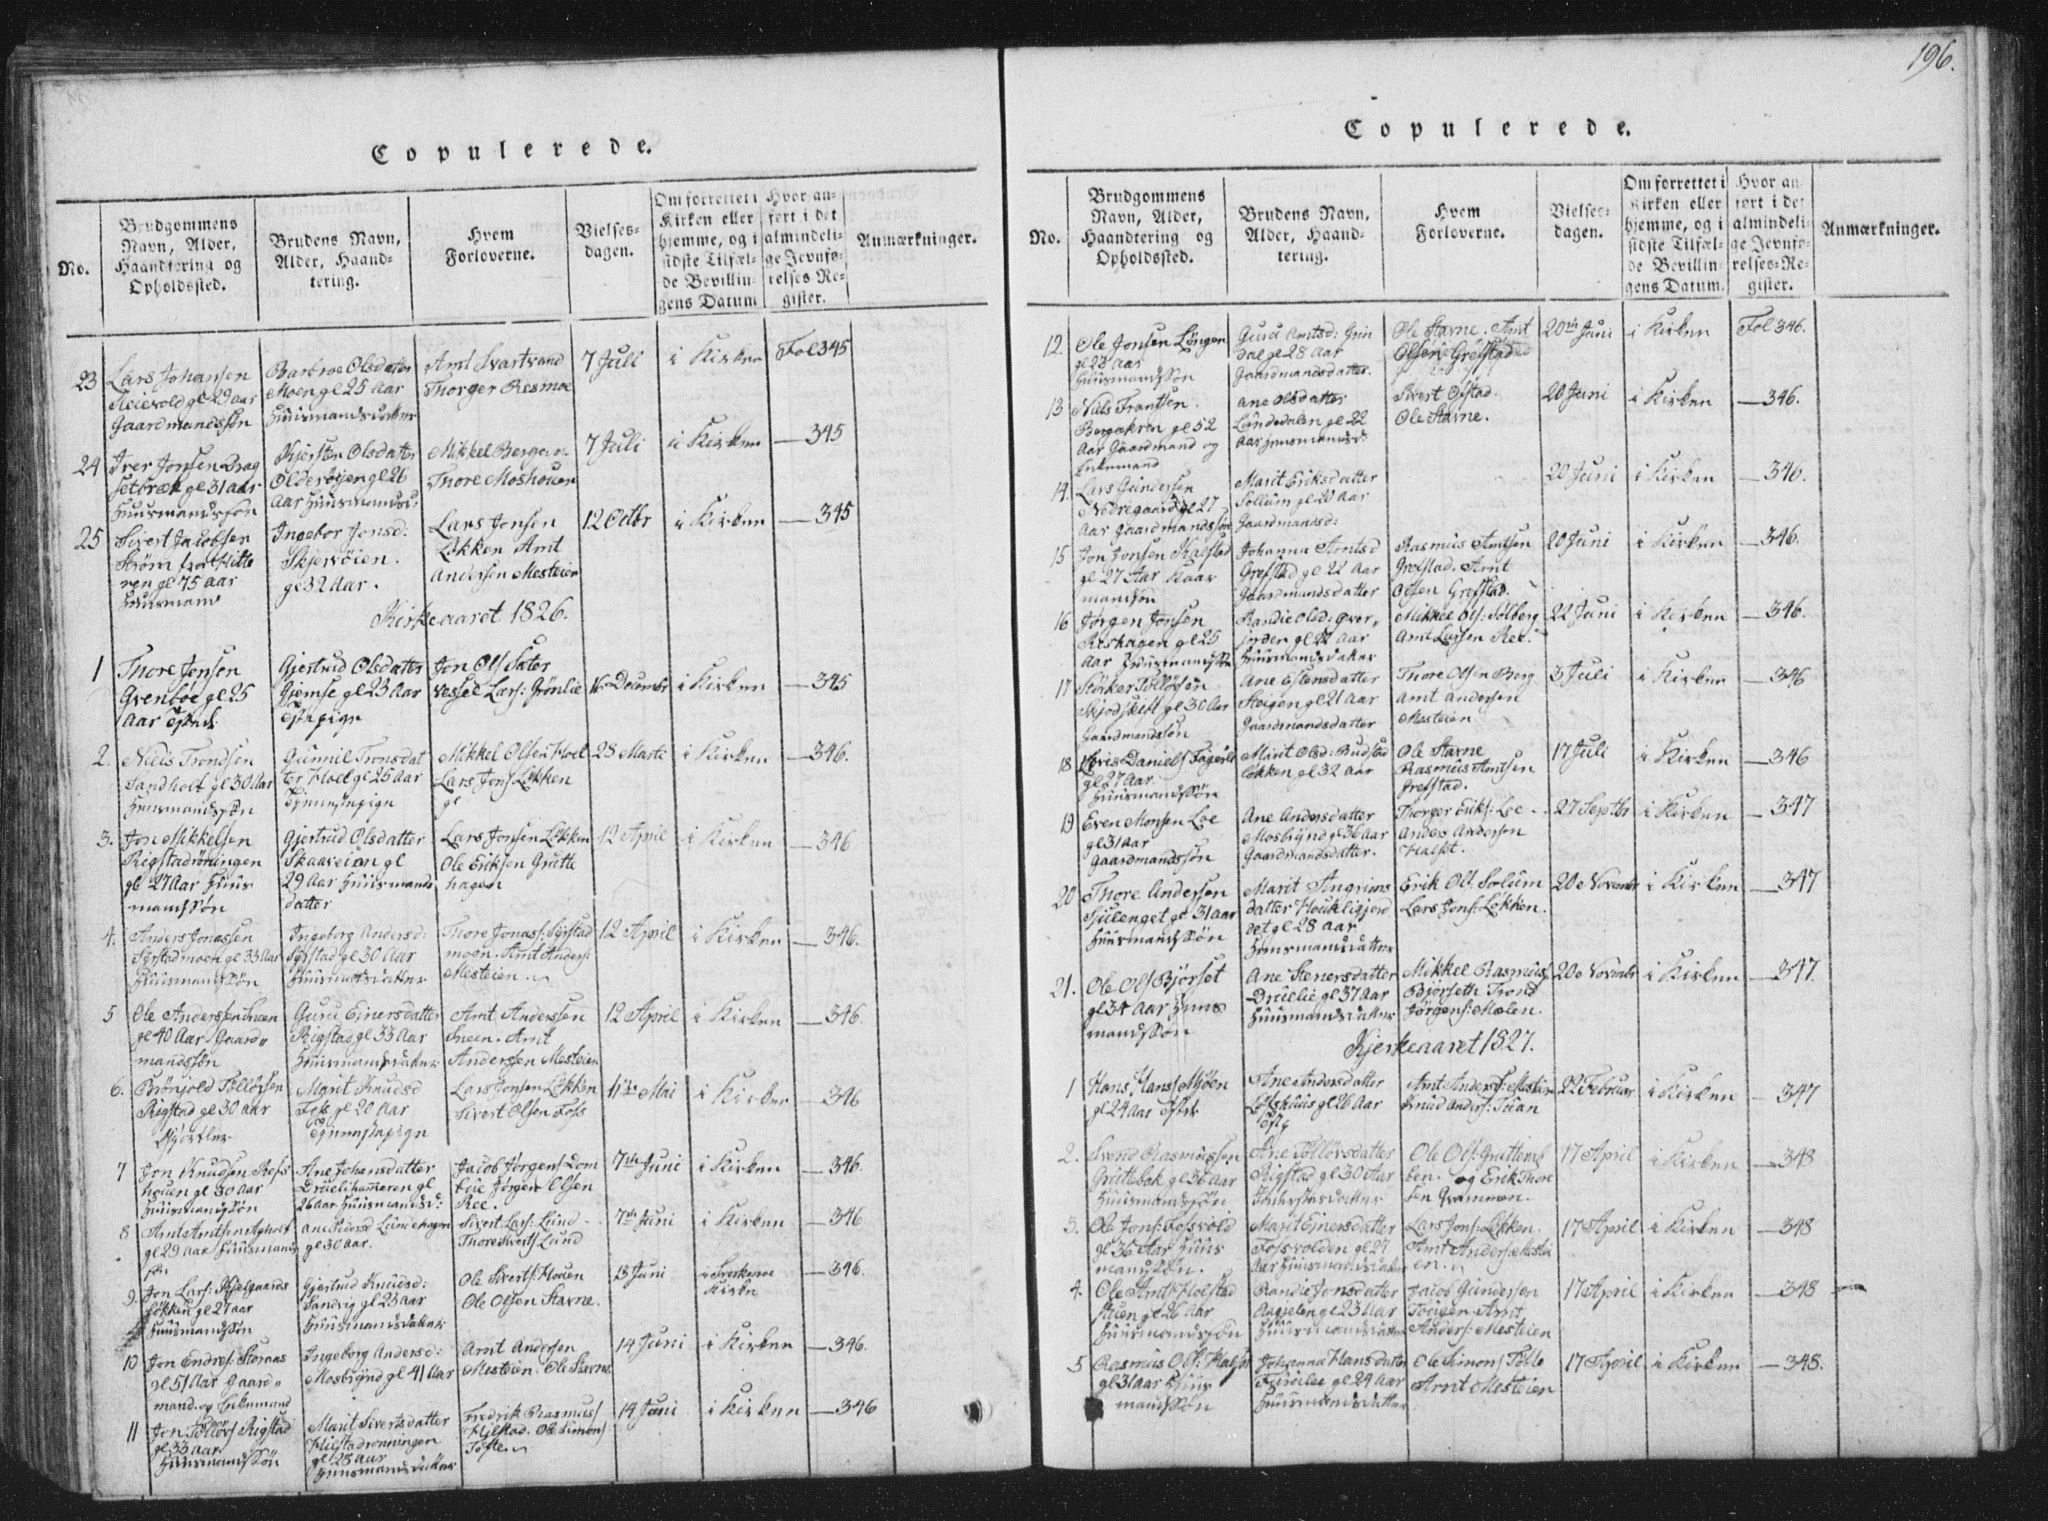 196.
Copulerede.
No.
Brudgommens
Navn, Alder,
Haandtering og
Opholdssted.
Brudens Navn,
Alder, Haand-
tering.
Hvem
Forloverne.
Vielses-
dagen.
Om forrettet i
Kirken eller
hjemme, og i
sidste Tilfæl-
de Bevillin-
gens Datum
Hvor an-
ført i det
almindeli-
ge Jevnfø-
relses-Re-
gister.
Anmærkninger.
23
Lars Johansen
gl 29 aar
Gaardmandssøn
Barbroe Olsdatter
Moen gl 25 Aar
Huusmandsdatter
Arnt Svartvand
Thorger Resmoe
7 Juli
i Kirken
Fol 345
24
Iver Jonsen Drag
setbræk gl 31 aar
Huusmandssøn
Kjersten Olsdatter
Olderøyen gl 26
Aar Huusmandsd:
Mikkel Bergan
Thore Moshouen
7 Juli
i Kirken
345
25
Sivert Jacobsen
Strøm fra Hitte
ren gl 75 aar
Huusmand
Ingebor Jonsd:
Skjervøien.
gl 32 Aar.
Lars Jonsen
Løkken Arnt
Andersen Mesteien
12 Octbr
i Kirken
345
Kirkeaaret 1826.
1
Thore Jonsen
Grenbøe gl 25
Aar
Gjertrud Olsdatter
Gjemse gl 23 Aar
Jon Ols Sater
Lars: Grønlie
16 Decembr
i Kirken
345
2.
Niels Trondsen
Sandholt gl 30 Aar
Huusmandssøn
Gunnil Tronsdat
ter Hoel gl 25 Aar
Mikkel Olsen Hoel
Lars Jons Løkken
gl
28 Marti
i Kirken
346.
3.
Jon Mikkelsen
Rigstadrøningen
gl 27 Aar Huus
mandssøn
Gjertrud Olsdatter
Skaareien gl
29 Aar Huusmands
datter
Lars Jonsen Løkken
Ole Eriksen Grutte
hagen
12 April
i Kirken
346
4.
Anders Jonassen
Syrstadmoen gl 33 Aar
Huusmandssøn
Ingeborg Andersd:
Syrstad gl 30 Aar
Huusmandsdatter
Thore Jonas: Syrstad
moen. Arnt Anders:
Mesteien
12 April
i Kirken
346.
5
Ole Anderssen Sneen
gl 40 Aar Gaard"
mandssøn
Guru Ejnersdatter
Rigstad gl 33 Aar
Huusmandsdatter
Arnt Anderssen
Sneen. Arnt
Anderssen Mesteien
12 April
i Kirken
346.
6.
Brønjold Tolløvsen
Rigstad gl 30 Aar
Marit Knudsd
Foss gl 20 Aar
Lars Jonsen Løkken
Sivert Olsen Foss
11te Mai
i Kirken
346
7
Jon Knudsen Refs
houen gl 30 aar
Huusmandssøn
Ane Johansdatter
Druelihameren gl
26 aar Huusmandsd:
Jacob Jørgens Lom
Jørgen Olsen
Ree.
7de Juni
i Kirken
346.
8
Arnt Arntsen
gl 29 aar Huusmands
søn
Ane Pedersd
gl 30 aar.
Sivert Lars: Lund
Thore Siverts Lund
7de Juni
i Kirken
346
9.
Jon Lars: Kjelgaards
løkken gl 27 aar
Huusmandssøn
Gjertrud Knudsd:
Sandvig gl 23 aar
Huusmandsdatter
Ole Siverts: Houen
Ole Olsen Stavne.
13 Juni
Kirke
346.
10
Jon Endres: Storaas
gl 51 Aar Gaard"
mand og Enkemand
Ingeborg Andersd:
Mosbrynd gl 41 Aar
Arnt Andersen
Mesteien. Ole Stavne
14 Juni
i Kirken
346.
11
Jon Tolløvs Rigstad
gl 33 aar
Huusmandssøn
Marit Sivertsdatter
Hilstadrønningen
gl 28 aar
Huusmandsdatter
Fredrik Rasmus/
Hilstad. Ole Simons/
Tofte
14 Juni
i Kirken
346
Copulerede.
No.
Brudgommens
Navn, Alder,
Haandtering og
Opholdssted.
Brudens Navn,
Alder, Haand-
tering.
Hvem
Forloverne.
Vielses-
dagen.
Om forrettet i
Kirken eller
hjemme, og i
sidste Tilfæl-
de Bevillin-
gens Datum.
Hvor an-
ført i det
almindeli-
ge Jevnfø-
relses-Re-
gister.
Anmærkninger.
12.
Ole Jonsen Løngen
gl 23 Aar
Huusmandssøn
Guru Arntsd: Grin
dal gl 28 Aar
Gaardmandsdatter.
Ole Stavne. Arnt
Olsen Grefstad
20de Juni
i Kirken
Fol 346.
13
Niels Frantsen
Bergakren gl 52
Aar Gaardmand og
Enkemand
Ane Olsdatter
Lundedalen gl 22
Aar Huusmandsd:
Sivert Ofstad
Ole Stavne.
20 Juni
i Kirken
346.
14.
Lars Gundersen
Nedregaard gl 27
Aar Gaardmandssøn
Marit Eriksdatter
Sollum gl 20 Aar
Gaardmandsd:
20 Juni
i Kirken
346.
15
Jon Jonsen Kalstad
gl 27 Aar
mandsøn
Johanna Arntsd
Grefstad gl 22 Aar
Gaardmandsdatter
Rasmus Arntsen
Grefstad. Arnt
Olsen Grefstad.
20 Juni
i Kirken
346.
16
Jørgen Jonsen
Reshagen gl 25
Aar Huusmandssøn
Randie Olsd:
gl 22 Aar
Huusmandsdatter
Mikkel Ols: Solberg
Arnt Larsen Ree.
22 Juni
i Kirken
346.
17
Størker Tolløvsen
Skjødskift gl 30 Aar
Gaardmandssøn
Ane Estensdatter
Stoigen gl 21 Aar
Gaardmandsdatter
Thore Olsen Berg
Arnt Andersen
Mesteien
3 Juli
i Kirken
346
18
Daniels Fagerli
gl 27 Aar
Huusmandssøn
Marit Olsd: Rudstad
løkken gl 32 aar
Ole Stavne
Rasmus Arntsen
Grefstad.
17 Juli
i Kirken
346
19
Even Monsen Loe
gl 31 aar
Gaardmandssøn
Ane Andersdatter
Mosbrynd gl 36 Aar
Gaardmandsdatter.
Thorger Eriks: Loe
Anders Andersen
Halset.
27 Septbr
i Kirken
347
20
Thore Andersen
Sjulenget gl 31 aar
Huusmandssøn
Marit Angrims
datter Houkligjerd
det gl 28 aar
Huusmandsdatter
Erik Ols: Solum
Lars Jons: Løkken.
20 Novembr
i Kirken
347
21.
Ole Ols Bjørset
gl 34 Aar Huus
mandssøn
Ane Stenersdatter
Druelie gl 37 Aar
Huusmandsdatter
Mikkel Rasmus/
Bjørseth Trond
Jørgens: Mælen.
20 Novembr
i Kirken
347.
Kjerkeaaret 1827.
1
Hans Hans/ Mjøen
gl 24 aar
Ane Andersdatter
gl 26 Aar
Arnt Anders: Mesteien
Knud Anders:
22 Februar
i Kirken
347
2.
Svend Rasmussen
Gruttebak gl 36 aar
Huusmandssøn
Ane Tolløvsdatter
Rigstad gl 30 Aar
Ole Ols Gruttemb
ben. og Erik Thore
sen Grammon.
17 April
i Kirken
348
3.
Ole Jons: Fossvold
gl 36 Aar Huus
mandssøn.
Marit Ejnersdatter
Fossvolden gl 27
Aar Huusmandsdatter
Lars Jons: Løkken.
Arnt Anders: Mestei
en.
17 April
i Kirken
348
4.
Ole Arnts Holstad
gl 26 Aar
Huusmandssøn
Randie Jonsdatter
gl 23 Aar
Huusmandsdatter
Jacob Gundersen
Arnt
Anders: Mesteien
17 April
i Kirken
348
5
Rasmus Ols: Halset
gl 31 aar Huus
mandssøn
Johanna Hansdatter
gl 24 aar
Huusmandsdatter
Ole Simons/ Tofte
Arnt Mesteien
17 April
i Kirken
348.